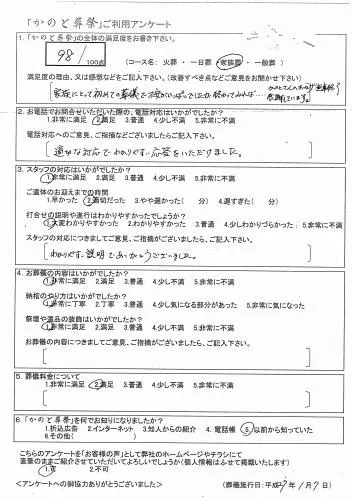 「かのと葬祭」ご利用アンケート
1.「かのと葬祭」の全体の満足度をお書き下さい。
98/100点 (コース名: 火葬 ・ 一日葬 ・ 家族葬 ・ 一般葬 )
満足度の理由、又は感想などをご記入下さい。(改善すべき点などご意見をお聞かせ下さい)
家族にとって初めての葬儀で
2.お電話でお問合せいただいた際の、電話対応はいかがでしたか?
1.非常に満足 2.満足 3.普通 4.少し不満 5.非常に不満
電話対応へのご意見、ご指摘などございましたらご記入下さい。
適切な対応でわかりやすい応答をいただけました。
3.スタッフの対応はいかがでしたか?
1.非常に満足 2.満足 3.普通 4.少し不満 5.非常に不満
ご遺体のお迎えまでの時間
1.早かった 2.適切だった 3.やや遅かった( 分) 4.遅すぎた( 分)
打合せの説明や進行はわかりやすかったでしょうか?
1.大変わかりやすかった 2.わかりやすかった 3.普通 4.少しわかりづらかった 5.非常に不満
スタッフの対応につきましてご意見、ご指摘がございましたら、ご記入下さい。
わかりやすい説明でありがとうございました。
4.お葬儀の内容はいかがでしたか?
1.非常に満足 2.満足 3.普通 4.少し不満 5.非常に不満
納棺のやり方はいかがでしたか?
1.非常に丁寧 2.丁寧 3.普通 4.少し気になる部分があった 5.非常に気になった
祭壇や遺品の装飾はいかがでしたか?
1.非常に満足 2.満足 3.普通 4.少し不満 5.非常に不満
お葬儀の内容につきましてご意見、ご指摘がございましたら、ご記入下さい。
5.葬儀料金について
1.非常に満足 2.満足 3.普通 4.少し不満 5.非常に不満
6.「かのと葬祭」を何でお知りになりましたか?
1.折込広告 2.インターネット 3.知人からの紹介 4.電話帳 5.以前から知っていた
6.その他( )
こちらのアンケートを「お客様の声」として弊社のホームページやチラシにて
直筆のままご紹介させていただいてよろしいでしょうか(個人情報はふせて掲載いたします)
1.可 2.不可
<アンケートへの御協力ありがとうございました> (葬儀施行日:平成 年 1月 7日)